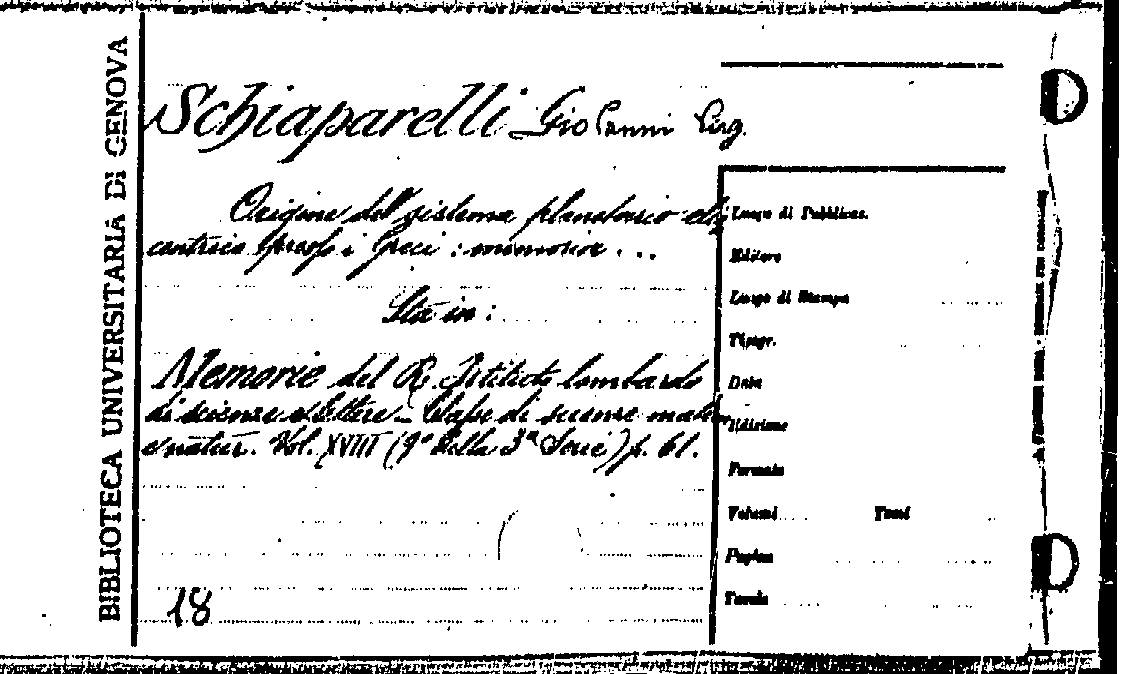 BIBLIOTECA UNIVERSITARIA DI GENOVA
Schiaparelli Giovanni Virg.
Origine del sistema planetario eli
centrico presso i Greci : memoria ...
Sta in :
Memorie del R. Istituto lombardo
di scienze e lettere - Classe di scienze matem.
e natur. Vol. XVIII (9° della 3ª Serie) p. 61.
18
Luogo di Pubblicaz.
Editore
Luogo di Stampa
Tipogr.
Data
Edizione
Formato
Volumi Tomi
Pagine
Tavole